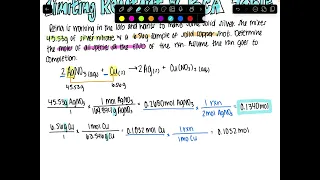 Limiting Reactant & BCA Table
Reina is working in the lab and wants to make some solid silver. She mixes
45.53g of silver nitrate w/ a 6.56g sample of solid copper shop. Determine
the moles of all species at the end of the rxn. Assume the rxn goes to
completion.
2 AgNO3 (aq) + Cu (s) → 2Ag (s) + Cu(NO3)2 (aq)
45.53g 6.56g
45.53g AgNO3 / 1 × 1 mol AgNO3 / g AgNO3 = 0.2680 mol AgNO3 × 1 rxn / 2mol AgNO3 = 0.1340 mol
6.56g Cu / 1 × 1mol Cu / 63.546g Cu = 0.1032 mol Cu × 1 rxn / 1mol Cu = 0.1032 mol